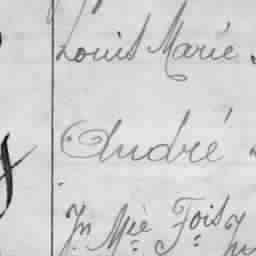 Louis Marie
André
Jn Mie Fois